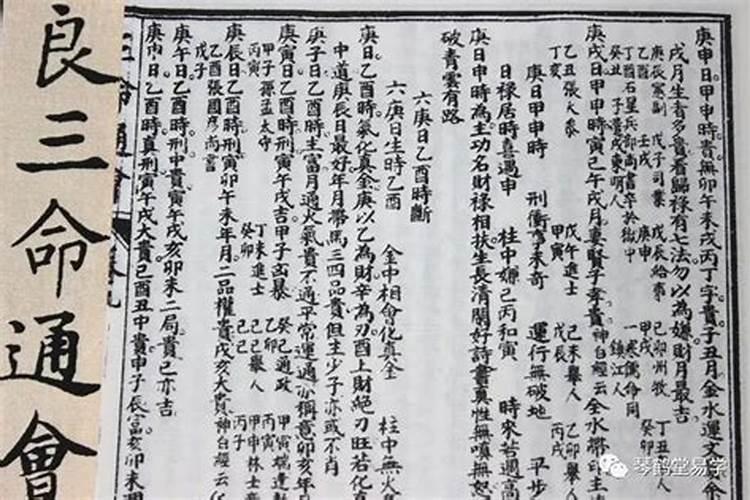 庚申日甲申時貴無卯午未戌丙丁字貴子丑月金水運文
戌月生者多貴看歸祿有七法勿以為嫌財月最吉
庚辰憲副 戊子司業 戊辰給事 己卯州牧 丁丑
丁酉 壬戌 庚申 甲戌 癸卯
丁酉石星兵部尚書卒於獄中 一寒儒命同
癸丑 子貴或東明人 鎮江人
庚戌日甲申時刑寅巳午戌月妻賢子孝貴神白經云金水帶印主
乙丑張大參 戊午進士 己未舉人 乙卯舉
丁亥 甲寅 戊辰 丙戌
庚日甲申時 刑衝 未奇 運行無破地 平步
日祿居時喜遇申 柱中嫌己丙和寅 時來若遇高
庚日申時為主功名財祿相扶生長清閒好詩書真性無嗔無恕
破青雲有路
六庚日乙酉時斷
六庚日生時乙酉 金中相會化真金 柱中無火
庚日乙酉時氣化真金庚以乙為財辛為刃酉上財絕刃旺若化真
中道庚辰日最好年月帶馬三四品貴但主少子亦或不肖
庚子日乙酉時主富月通火氣貴不過平常運通亦稱意卯亥年月
庚寅日乙酉時刑寅午戌吉甲子凶暴 癸巳通政 甲寅
丙寅 乙卯 丙寅
甲子孫孟太守 丁未進士 己巳舉人 甲申林士
丙寅 癸卯 己巳 丙子
庚辰日乙酉時刑寅卯午未年月二品權貴戌亥大貴神白經云
乙酉張國彥尚書
戊子
庚午日乙酉時刑中貴寅午戌亥卯未二局貴巳亦吉
庚申日乙酉時真刑寅午戌大貴己酉丑中貴申子辰富亥卯未
良三命通會
琴鹤堂易学